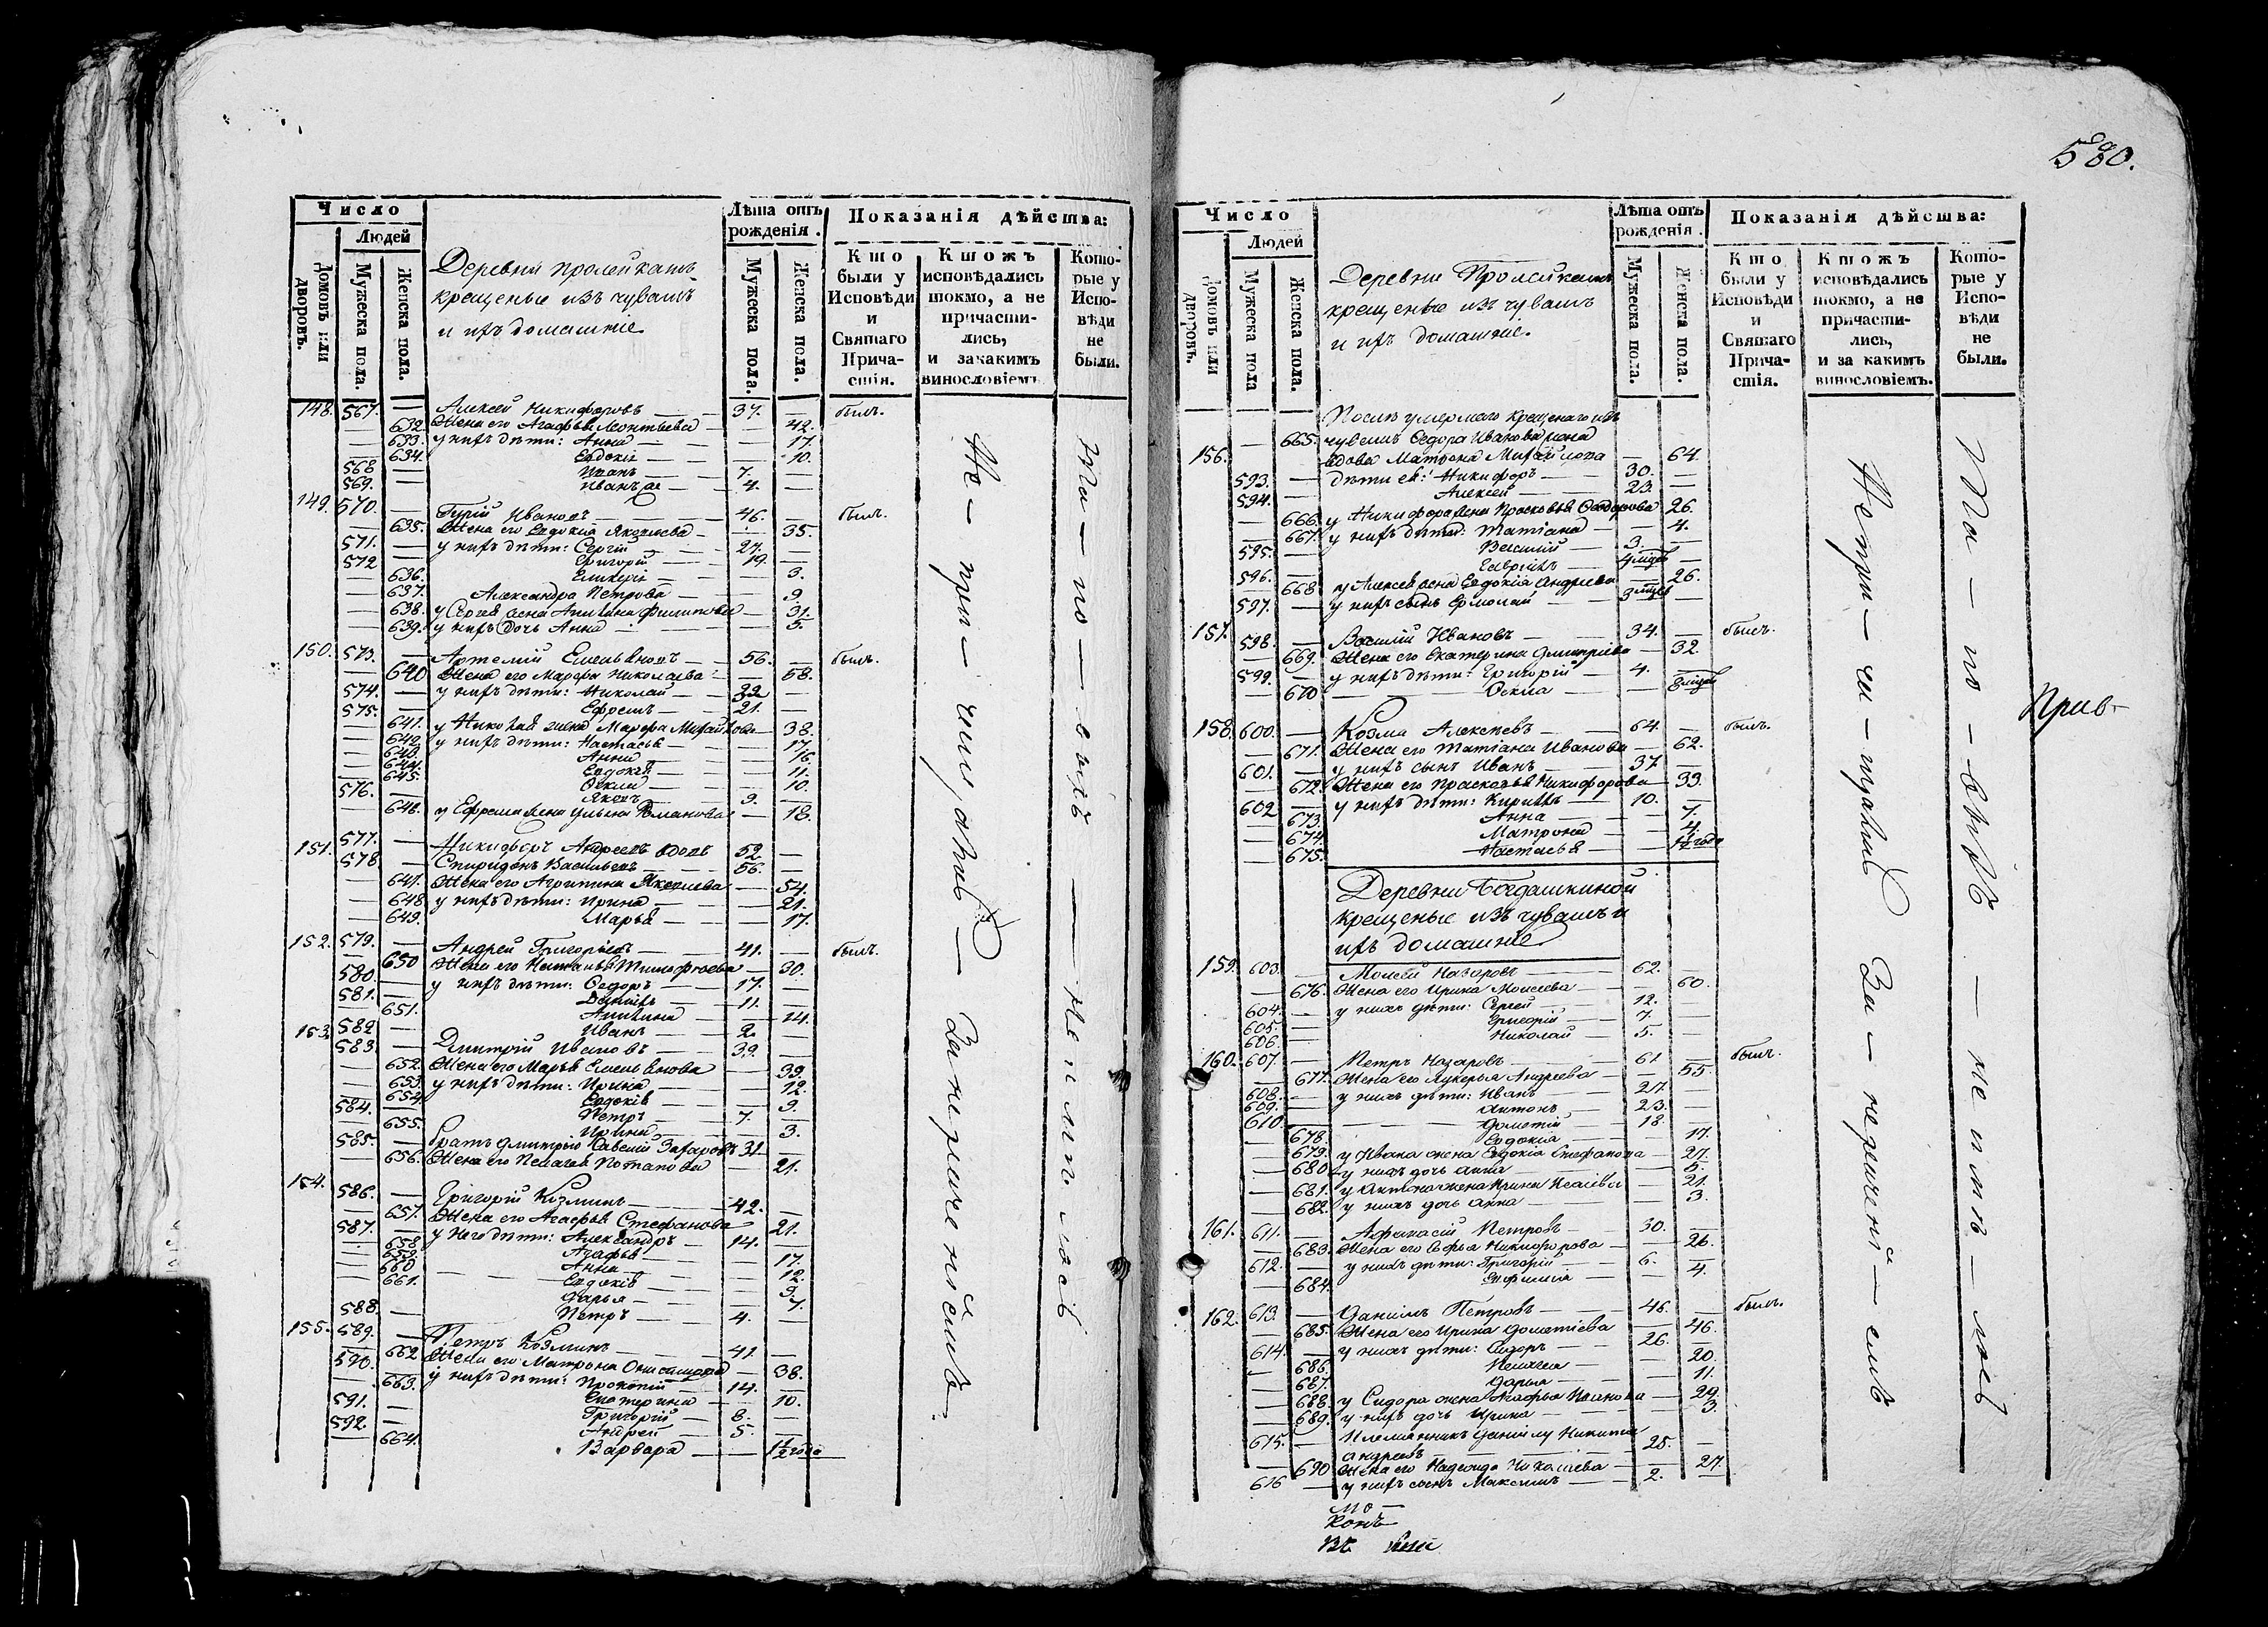 580.
Число
Людей
Домовъ или дворовъ.
Мужеска пола.
Женска пола.
Деревни Пролейкашъ
крещеные изъ чувашъ
и ихъ домашніе
Лѣта отъ рожденія.
Мужеска пола.
Женска пола.
Показанія дѣйства:
Кто были у Исповѣди и Святаго Прича-стія.
Ктожъ исповѣдались токмо, а не причасти-лись, и закакимъ винословіемъ.
Кото-рые у Испо-вѣди не были.
148. 567. — Алексей Никифоровъ — 37. — былъ.
— 632. Жена его Агафья Леонтьева — 42.
— 633. у нихъ дѣти: Анна — 17.
— 634. Евдокія — 10.
568 — Иванъ — 7. —
569. — Иванъ же — 4. —
149. 570. — Гурій Ивановъ — 46. — былъ.
— 635. Жена его Евдокія Яковлева — 35.
571. — у нихъ дѣти: Сергій — 27. —
572 — Григорій — 19. —
— 636. Гликерія — 3.
— 637. Александра Петрова — 9
— 638. у Сергея жена Анна Филипова — 31.
— 639. у нихъ дочь Анна — 5.
150. 573. — Артемій Емельяновъ — 56. — былъ.
— 640 Жена его Марфа Николаева — 58.
574. — у нихъ дѣти: Николай — 32 —
575. — Ефремъ — 21. —
— 641. у Николая жена Марфа Михайлова — 38.
— 642. у нихъ дѣти: Настасья — 17.
— 643. Анна — 16.
— 644. Евдокія — 11.
— 645. Фекла — 10.
576. — Яковъ — 9. —
— 646. у Ефрема жена Ульяна Романова — 18.
151. 577. — Никифоръ Андреевъ вдовъ 52 —
578 — Спиридонъ Васильевъ 56. —
— 647. Жена его Агрипина Яковлева — 54.
— 648. у нихъ дѣти: Ирина — 21.
— 649. Марья — 17.
152. 579. — Андрей Григорьевъ — 41. — былъ.
— 650 Жена его Наталья Тимофеева — 30.
580. — у нихъ дѣти: Федоръ — 17. —
581. — Данилъ — 11. —
— 651. — 14.
582 — Иванъ — 2. —
153. 583. — Дмитрій Ивановъ — 39. —
— 652. Жена его Марья Емельянова — 39.
— 653. у нихъ дѣти: Ирина — 12.
— 654. Евдокія — 9.
584. — Петръ — 7. —
— 655. Ирина — 3.
585. — Братъ Дмитрію Савелій Захаровъ 31 —
— 656. Жена его Пелагея Потапова — 21.
154. 586. — Григорій Козминъ — 42. —
— 657. Жена его Агафья Стефанова — 21.
587. — у него дѣти: Александръ — 14. —
— 658 Агафья — 17.
— 659. Анна — 12.
— 660 Евдокія — 9.
— 661. Дарья — 7.
588. — Петръ — 4. —
155. 589. — Петръ Козминъ — 41 —
— 662 Жена его Матрона — 38.
590. — у нихъ дѣти: Прокопій — 14. —
— 663. Екатерина — 10.
591. — Григорій — 8. —
592. — Андрей — 5. —
— 664. Варвара — 1½ года
Не — при — чи — Занереченіемъ
та — по — выхъ — не имѣ — лось
Число
Людей
Домовъ или дворовъ.
Мужеска пола
Женска пола.
Деревни Пролейкашъ
крещеные изъ чувашъ
и ихъ домашніе.
Лѣта отъ рожденія.
Мужеска пола.
Женска пола.
Показанія дѣйства:
Кто были у Исповѣди и Святаго Прича-стія.
Ктожъ исповѣдались токмо, а не причасти-лись, и за какимъ винословіемъ.
Кото-рые у Испо-вѣди не были.
Послѣ умершаго крещенаго изъ
665. чувашъ Федора Иванова жена
156. — вдова Матрона Михайлова — 64.
593. — дѣти ея: Никифоръ — 30. —
594. — Алексей — 23. —
— 666. у Никифора жена Прасковья Федорова 26.
— 667. у нихъ дѣти: Татіана — 4.
595. — Василій — 3. —
596. — Гаврилъ — 4 мцъ —
— 668 у Алексея жена Евдокія Андреева — 26.
597. — у нихъ сынъ Ермолай — 3 мцъ —
157. 598. — Василій Ивановъ — 34. — былъ.
— 669. Жена его Екатерина Дмитріева — 32
599. — у нихъ дѣти: Григорій — 4. —
— 670 Фекла — 8 мцъ
158. 600. — Козма Алексеевъ — 64. — былъ.
— 671. Жена его Татіана Иванова — 62.
601. — у нихъ сынъ Иванъ — 37 —
— 672. Жена его Прасковья Никифорова — 33.
602 — у нихъ дѣти: Кирилъ — 10. —
— 673. Анна — 7.
— 674. Матрона — 4.
— 675. Настасья — 1½ года
Деревни Богдашкиной
крещеные изъ чувашъ и
ихъ домашніе
159. 603. — Моисей Назаровъ — 62. —
— 676. Жена его Ирина Моисеева — 60.
604. — у нихъ дѣти: Сергей — 12. —
605. — Григорій — 7. —
606. — Николай — 5. —
160. 607. — Петръ Назаровъ — 61 — былъ.
— 677. Жена его Лукерья Андреева — 55.
608. — у нихъ дѣти: Иванъ — 27. —
609. — Антонъ — 23. —
610 — Дометій — 18. —
— 678. Евдокія — 17.
— 679. у Ивана жена Евдокія Стефанова — 27.
— 680 у нихъ дочь Анна — 5.
— 681. у Антона жена Ирина Исаева — 21.
— 682. у нихъ дочь Анна — 3.
161. 611. — Афанасій Петровъ — 30. —
— 683. Жена его Софья Никифорова — 26.
612. — у нихъ дѣти: Григорій — 6. —
— 684. Ефимія — 4.
162. 613. — Данилъ Петровъ — 46. — былъ.
— 685. Жена его Ирина Дометіева — 46.
614. — у нихъ дѣти: Сидоръ — 26. —
— 686. Пелагея — 20.
— 687. Дарья — 11.
— 688. у Сидора жена Агафья Иванова — 29.
— 689. у нихъ дочь Ирина — 3.
615. — Племянникъ Данилу Никита
Андреевъ — 25. —
— 690 Жена его Надежда Николаева — 27.
616 — у нихъ сынъ Максимъ — 2. —
За — неречені — емъ
та — по — выхъ — не имѣ — лось
Прив-
мо —
конъ